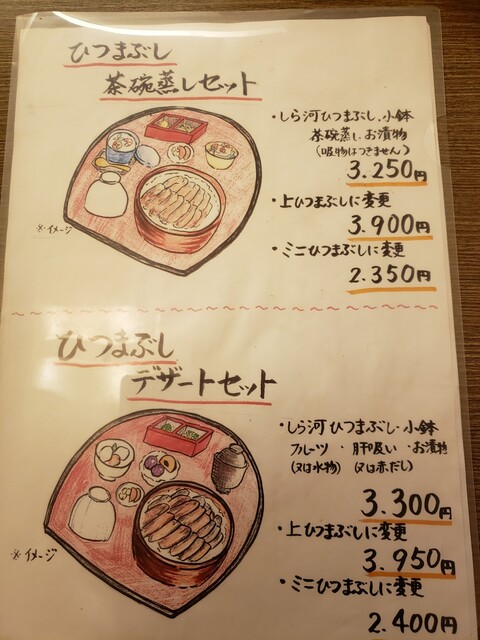 ひつまぶし
茶碗蒸しセット
・しら河ひつまぶし、小鉢
茶碗蒸し、お漬物
(吸物はつきません)
3.250円
・上ひつまぶしに変更
3.900円
・ミニひつまぶしに変更
2.350円
※イメージ
ひつまぶし
デザートセット
・しら河ひつまぶし・小鉢
フルーツ・肝吸い・お漬物
(又は水物) (又は赤だし)
3.300円
・上ひつまぶしに変更
3.950円
・ミニひつまぶしに変更
2.400円
※イメージ